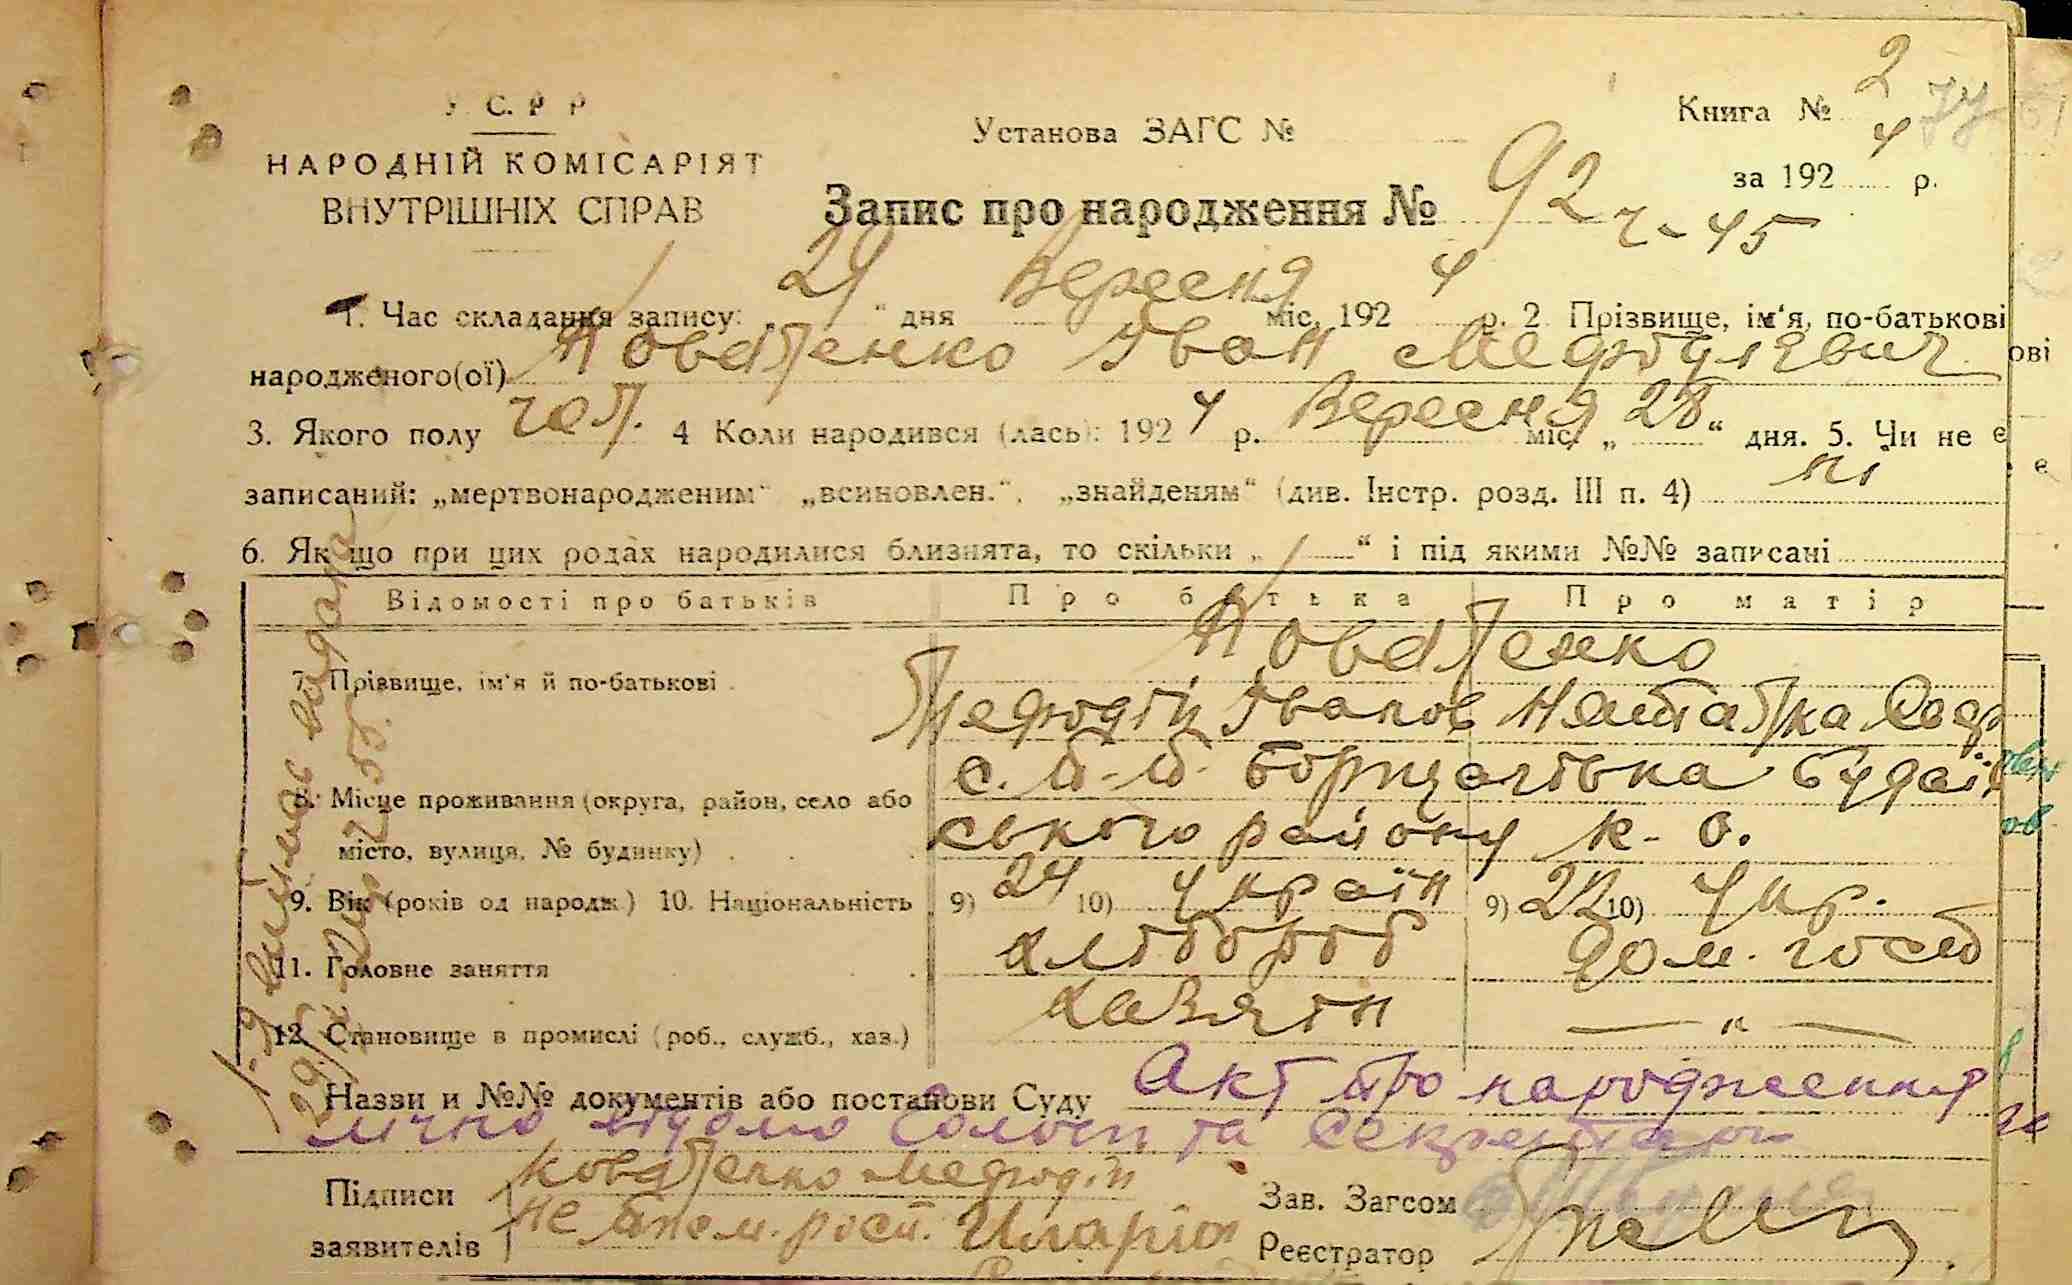 У. С. Р. Р.
НАРОДНІЙ КОМІСАРІЯТ
ВНУТРІШНІХ СПРАВ
Установа ЗАГС №
Книга № 2
за 192 4 р.
Запис про народження № 92 ч-45
1. Час складання запису: „ 29 “ дня Вересня міс. 192 4 р. 2 Прізвище, ім‘я, по-батькові
народженого(ої) Коваленко Іван Мефодіявич
3. Якого полу чол. 4 Коли народився (лась): 192 4 р. Вересня міс. „ 28 “ дня. 5. Чи не є
записаний: „мертвонародженим“ „всиновлен.“, „знайденям“ (див. Інстр. розд. III п. 4) ні
6. Як що при цих родах народилися близнята, то скільки „ “ і під якими №№ записані
Відомості про батьків Про батька Про матір
Коваленко
7. Прізвище, ім‘я й по-батькові Мефодій Іванов Наталка
с. П-П. Борщагівка Будаїв
8. Місце проживання (округа, район, село або
місто, вулиця, № будинку) ського району К-О.
9. Вік (років од народж.) 10. Національність 9) 24 10) Україн 9) 22 10) Укр.
11. Головне заняття хлібороб дом. госп
12. Становище в промислі (роб., служб., хаз.) хазяїн — " —
Назви и №№ документів або постанови Суду Акт про народження
лічно відомо Голові та Секретарю
Підписи Коваленко Мефодій
заявителів неписьм. росп. Иларіон
Зав. Загсом
Реєстратор